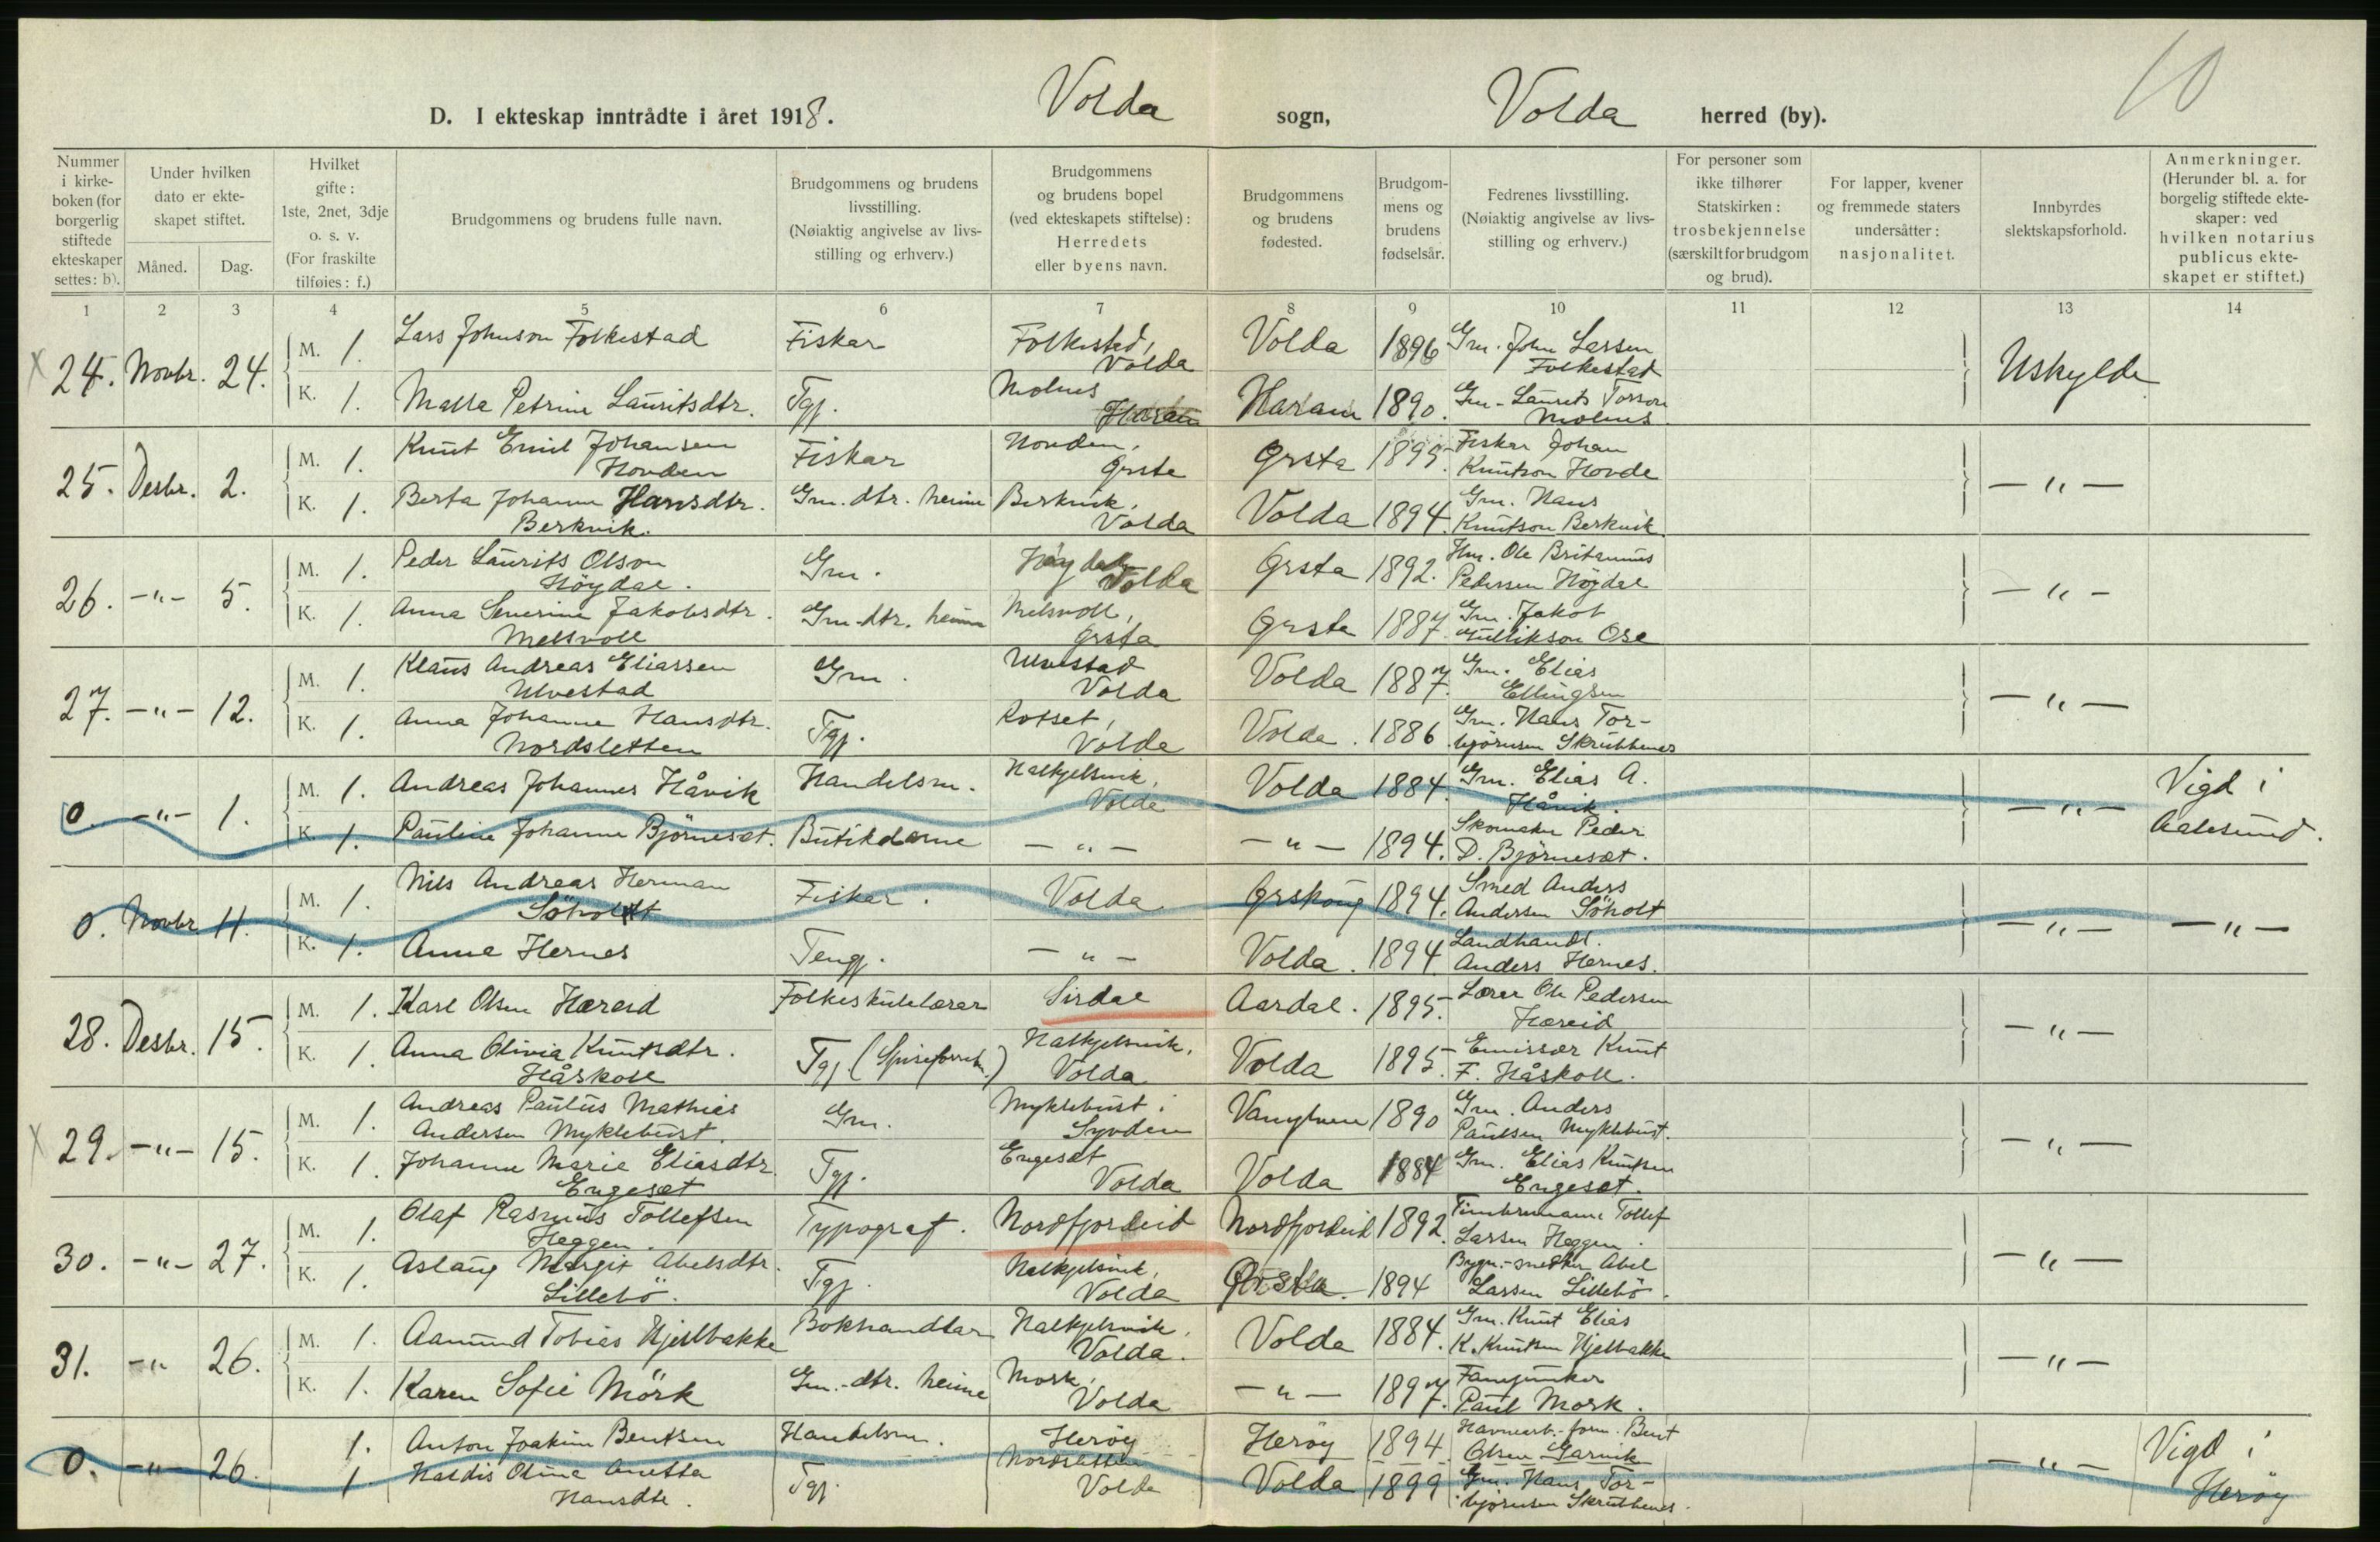 10
D. I ekteskap inntrådte i året 1918. Volda sogn, Volda herred (by).
Nummer i kirkeboken (for borgerlig stiftede ekteskaper settes: b).
Under hvilken dato er ekteskapet stiftet.
Måned. Dag.
Hvilket gifte: 1ste, 2net, 3dje o. s. v. (For fraskilte tilføies: f.)
Brudgommens og brudens fulle navn.
Brudgommens og brudens livsstilling. (Nøiaktig angivelse av livsstilling og erhverv.)
Brudgommens og brudens bopel (ved ekteskapets stiftelse): Herredets eller byens navn.
Brudgommens og brudens fødested.
Brudgommens og brudens fødselsår.
Fedrenes livsstilling. (Nøiaktig angivelse av livsstilling og erhverv.)
For personer som ikke tilhører Statskirken: trosbekjennelse (særskilt for brudgom og brud).
For lapper, kvener og fremmede staters undersåtter: nasjonalitet.
Innbyrdes slektskapsforhold.
Anmerkninger. (Herunder bl. a. for borgelig stiftede ekteskaper: ved hvilken notarius publicus ekteskapet er stiftet.)
1 2 3 4 5 6 7 8 9 10 11 12 13 14
X 24. Novbr. 24. M. 1. Lars Johnson Folkestad Fiskar Folkestad, Volda Volda 1896 Gm. John Larsen Folkestad Uskylde
K. 1. Malla Petrine Lauritsdtr. Tgj. Molnes Haram Haram 1890. Gm. Laurits Molnes
25. Desbr. 2. M. 1. Knut Emil Johansen Hovden Fiskar Hovden, Ørsta Ørsta 1895. Fiskar Johan Knutson Hovde — " —
K. 1. Berta Johanne Hansdtr. Berkvik. Gm. dtr. heime Berkvik, Volda Volda 1894. Gm. Hans Knutson Berkvik
26. — " — 5. M. 1. Peder Laurits Olson Höydal. Gm. Höydal Volda Ørsta 1892. Ole Pedersen Höydal — " —
K. 1. Anna Severine Jakobsdtr. Melsvoll Gm. dtr. heime Melsvoll, Ørsta Ørsta 1887. Gm. Jakob Gullikson Ose
27. — " — 12. M. 1. Klaus Andreas Eliassen Ulvestad Gm. Ulvestad Volda Volda 1887. Gm. Elias Ellingsen — " —
K. 1. Anna Johanne Hansdtr. Nordsletten Tgj. Rotset, Volda Volda. 1886. Gm. Hans Torbjörnsen Skrubbenes
0. — " — 1. M. 1. Andreas Johannes Håvik Handelsm. Halkjelsvik, Volda Volda 1884. Gm. Elias A. Håvik. — " — Vigd i Aalesund.
K. 1. Pauline Johanne Björneset. Butikdame — " — — " — 1894. Skomaker Peder D. Björneset.
0. Novbr. 11. M. 1. Nils Andreas Herman Söholt Fisker. Volda Ørskoug 1894. Smed Anders Andersen Söholt — " — — " —
K. 1. Anna Hernes Tengj. — " — Volda. 1894. Landhandl. Anders Hernes.
28. Desbr. 15. M. 1. Karl Olsen Hæreid Folkeskulelærar Sirdal Aardal. 1895. Lærer Ole Pedersen Hæreid — " —
K. 1. Anna Olivia Knutsdtr. Håskoll Tgj. Halkjelsvik, Volda Volda 1895. Emissær Knut F. Håskoll.
X 29. — " — 15. M. 1. Andreas Paulus Mathias Andersen Myklebust. Gm. Myklebust i Syvden Vanylven 1890 Gm. Anders Paulsen Myklebust. — " —
K. 1. Johanne Marie Eliasdtr. Engeset Tgj. Engeset Volda Volda 1884 Gm. Elias Knutsen Engeset.
30. — " — 27. M. 1. Olaf Rasmus Tollefsen Heggen. Typograf. Nordfjordeid Nordfjordeid 1892. Timbermann Tollef Larsen Heggen. — " —
K. 1. Aslaug Margit Abelsdtr. Lillebö. Tgj. Halkjelsvik, Volda Ørsta. 1894 Abel Larsen Lillebö.
31. — " 26. M. 1. Aamund Tobias Hjellbakke Bokhandlar Halkjelsvik, Volda. Volda 1884. Gm. Knut Elias K. Knutsen Hjellbakke — " —
K. 1. Karen Sofie Mörk Gm.-dtr. heime Mork, Volda — " — 1897. Fanejunker Paul Mork.
0. — " — 26. 1. Anton Joakim Bentsen Handelsm. Heröy Heröy 1894 Bent Olsen Garvik — " — Vigd i Heröy
1. Haldis Oline Anetta Hansdtr. Tgj. Nordsletten Volda Volda 1899 Gm. Hans Torbjörnsen Skrubbenes.